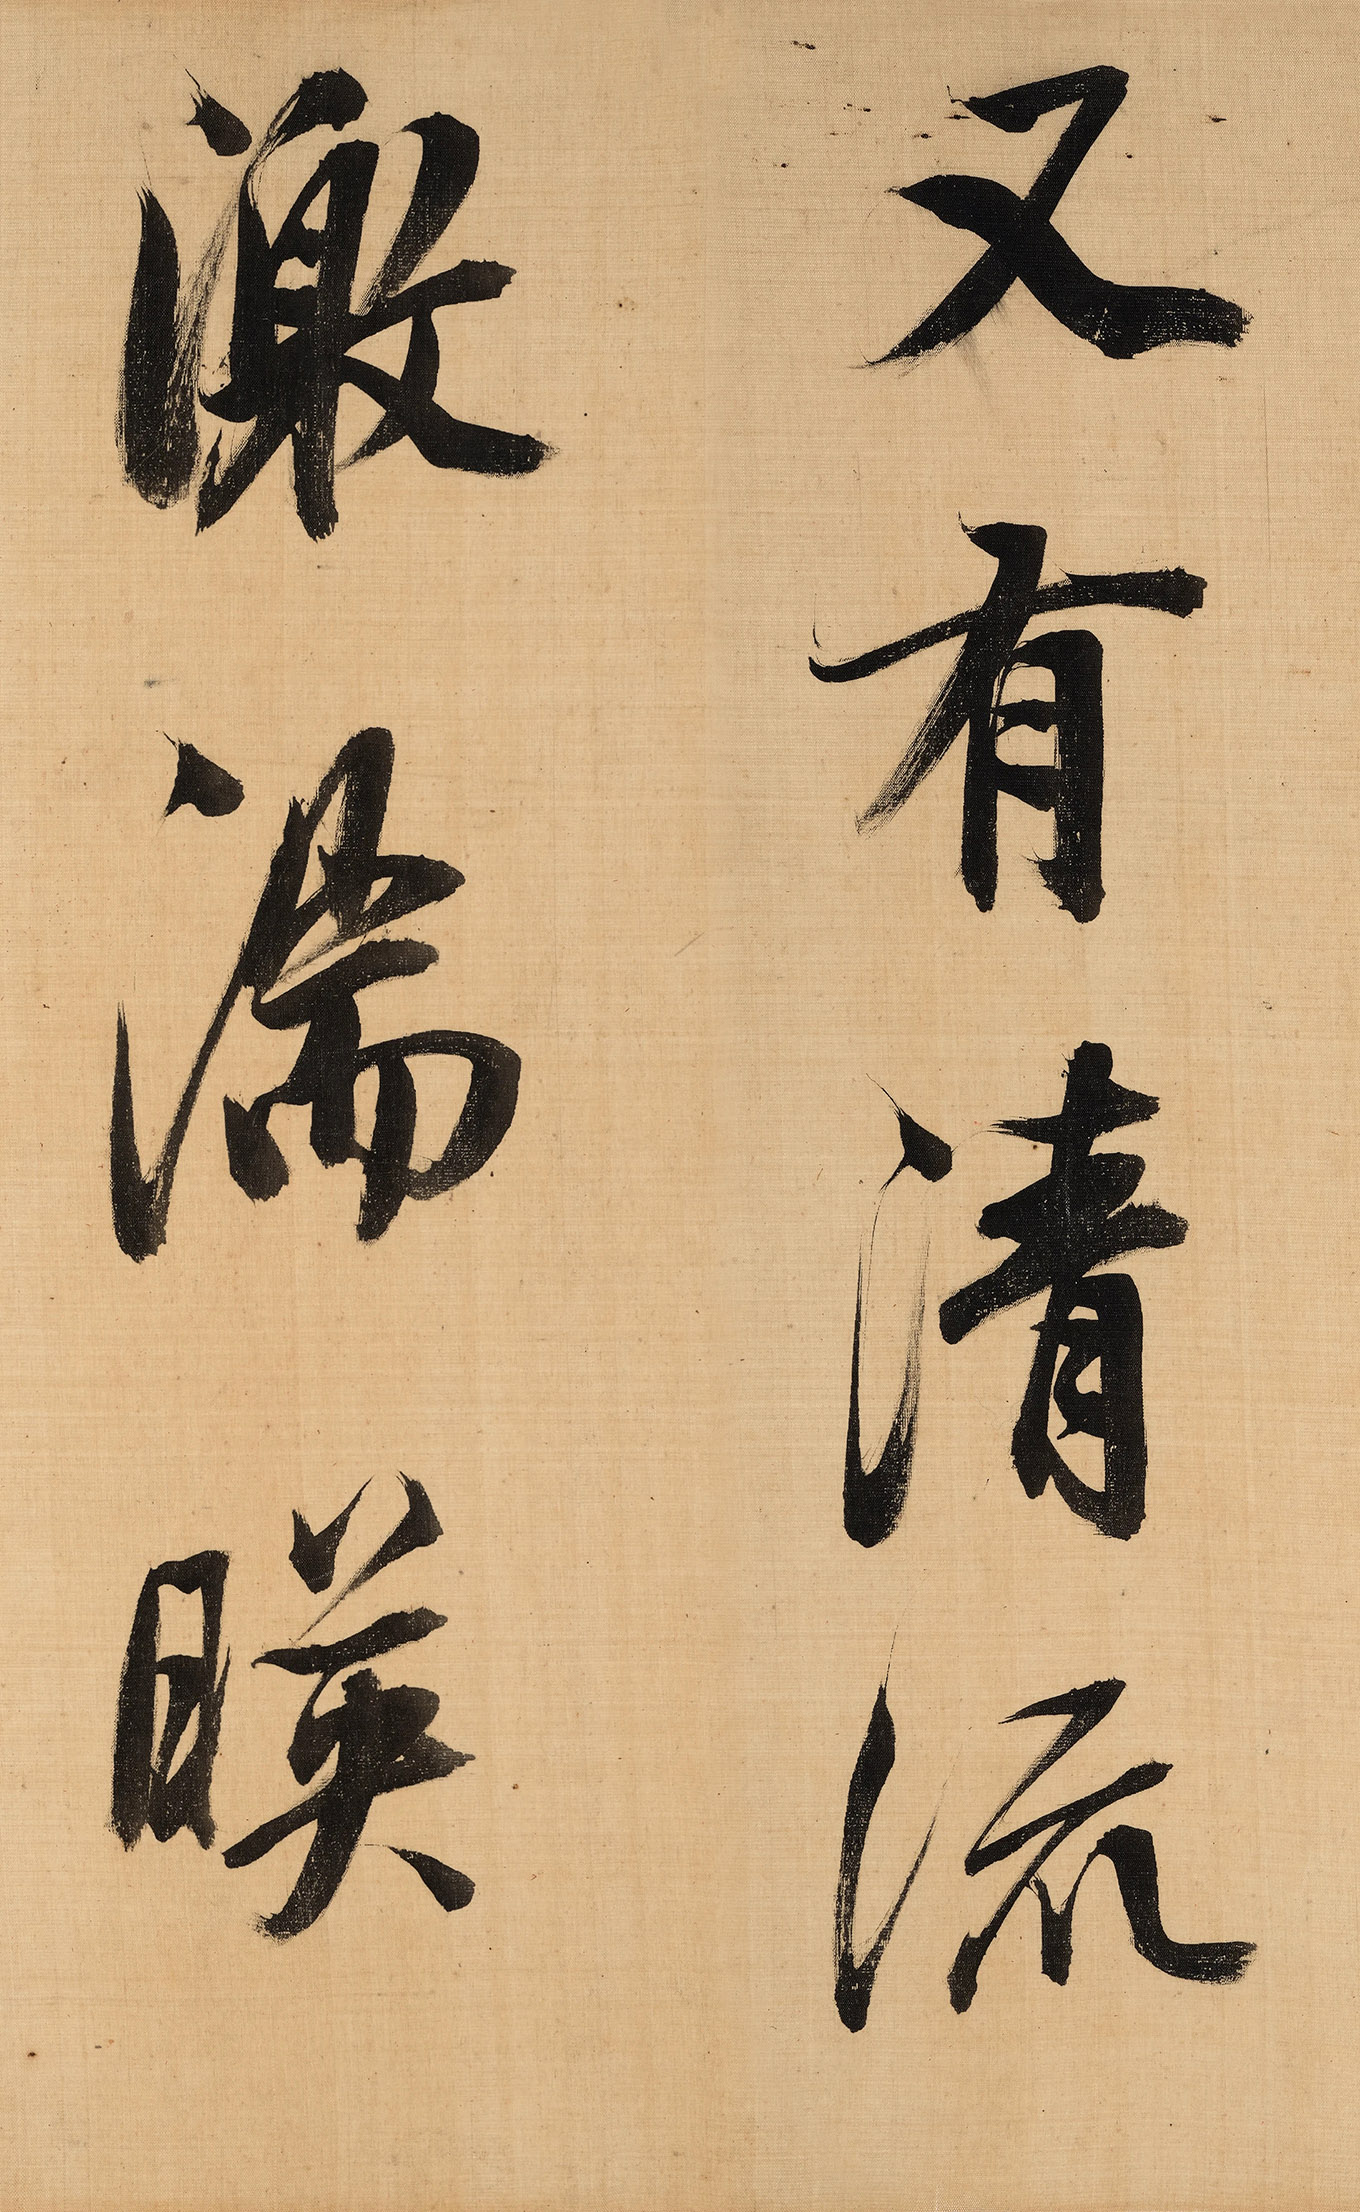 又有清流
激湍暎